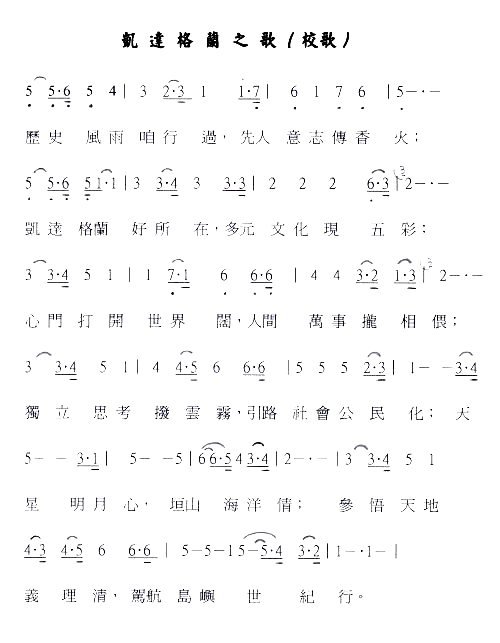 凱達格蘭之歌(校歌)
5 5·6 5 4| 3 2·3 1 1·7| 6 1 7 6 |5-·-
歷史 風雨 咱行 過，先人 意志傳香 火；
5 5·6 5 1·1|3 3·4 3 3·3| 2 2 2 6·3|2-·-
凱達 格蘭 好所 在，多元 文化現 五彩；
3 3·4 5 1 | 1 7·1 6 6·6 | 4 4 3·2 1·3| 2-·-
心門 打開 世界 闊，人間 萬事攏 相偎；
3 3·4 5 1| 4 4·5 6 6·6 |5 5 5 2·3| 1- -3·4
獨立 思考 撥雲霧，引路 社會公民 化；天
5- - 3·1| 5- -5|6 6·5 4 3·4|2-·-| 3 3·4 5 1
星 明月心，垣山 海洋情； 參悟天地
4·3 4·5 6 6·6 |5-5-15-5·4 3·2|1-·1-|
義理清，駕航島嶼 世 紀行。